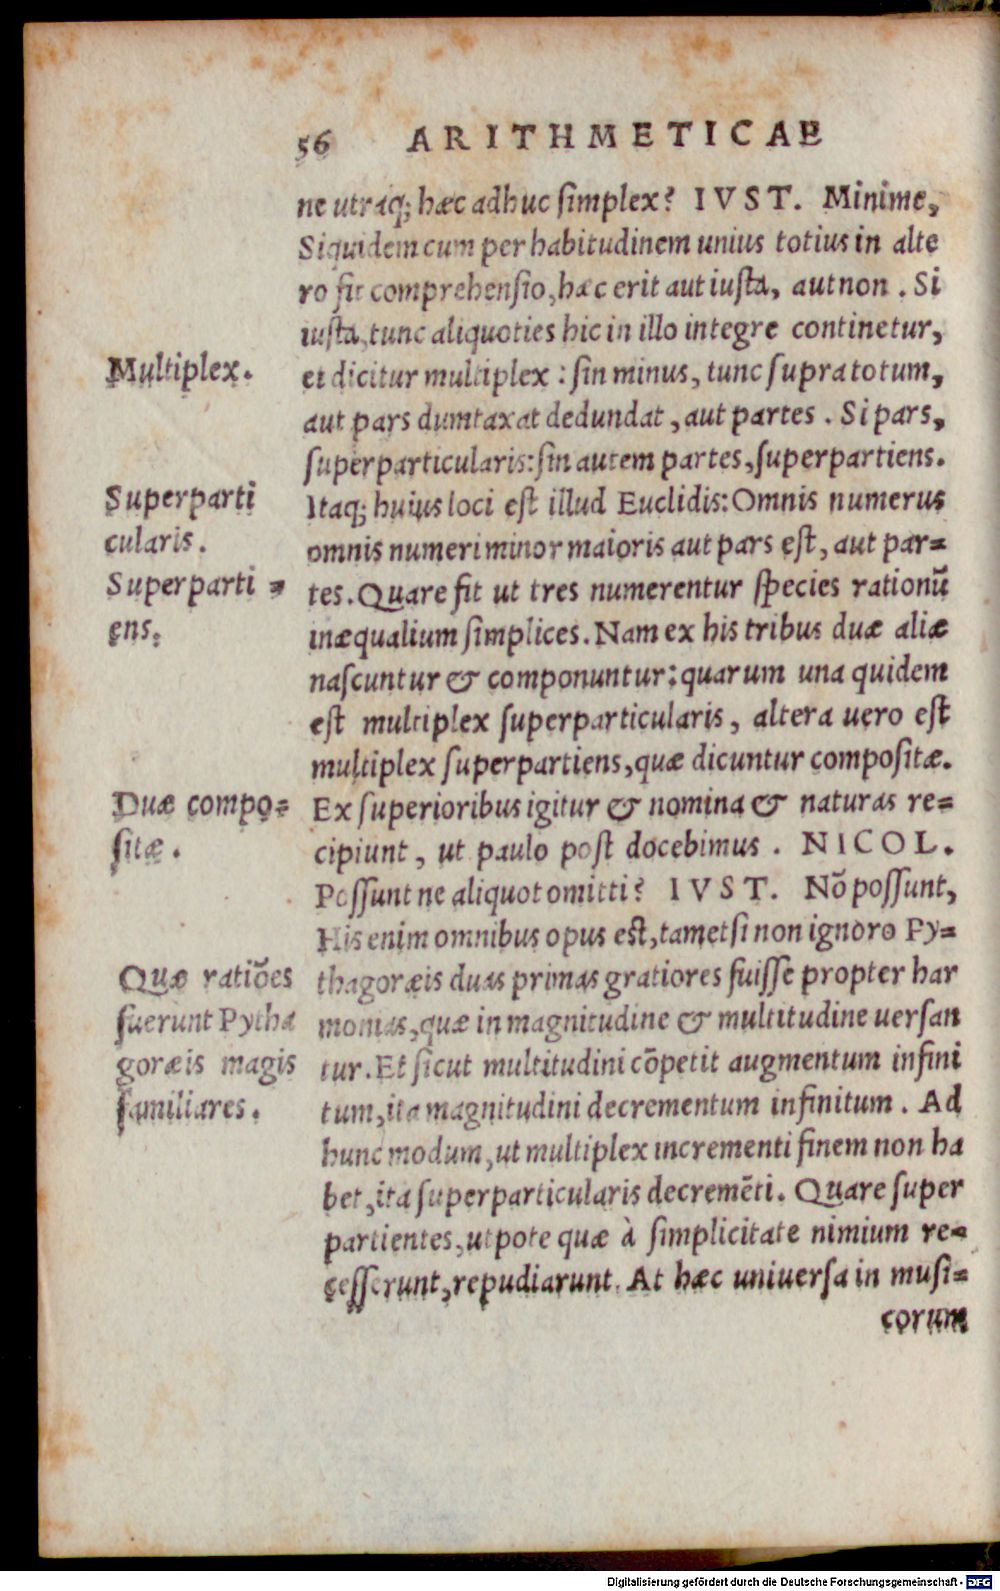 56 ARITHMETICAE
ne utraq; hæc adhuc simplex? IVST. Minime,
Siquidem cum per habitudinem unius totius in alte
ro fit comprehensio, hæc erit aut iusta, aut non. Si
iusta, tunc aliquoties hic in illo integre continetur,
Multiplex.
et dicitur multiplex: sin minus, tunc supra totum,
aut pars dumtaxat dedundat, aut partes. Si pars,
superparticularis: sin autem partes, superpartiens.
Superparti
cularis.
Superparti=
ens.
Itaq; huius loci est illud Euclidis: Omnis numerus
omnis numeri minor maioris aut pars est, aut par=
tes. Quare fit ut tres numerentur species rationū
inæqualium simplices. Nam ex his tribus duæ aliæ
nascuntur & componuntur: quarum una quidem
est multiplex superparticularis, altera uero est
multiplex superpartiens, quæ dicuntur compositæ.
Duæ compo=
sitæ.
Ex superioribus igitur & nomina & naturas re=
cipiunt, ut paulo post docebimus. NICOL.
Possunt ne aliquot omitti? IVST. Nō possunt,
His enim omnibus opus est, tametsi non ignoro Py=
Quæ ratiōes
fuerunt Pytha
goræis magis
familiares.
thagoræis duas primas gratiores fuisse propter har
monias, quæ in magnitudine & multitudine uersan
tur. Et sicut multitudini cōpetit augmentum infini
tum, ita magnitudini decrementum infinitum. Ad
hunc modum, ut multiplex incrementi finem non ha
bet, ita superparticularis decremēti. Quare super
partientes, utpote quæ à simplicitate nimium re=
cesserunt, repudiarunt. At hæc uniuersa in musi=
corum
Digitalisierung gefördert durch die Deutsche Forschungsgemeinschaft - DFG